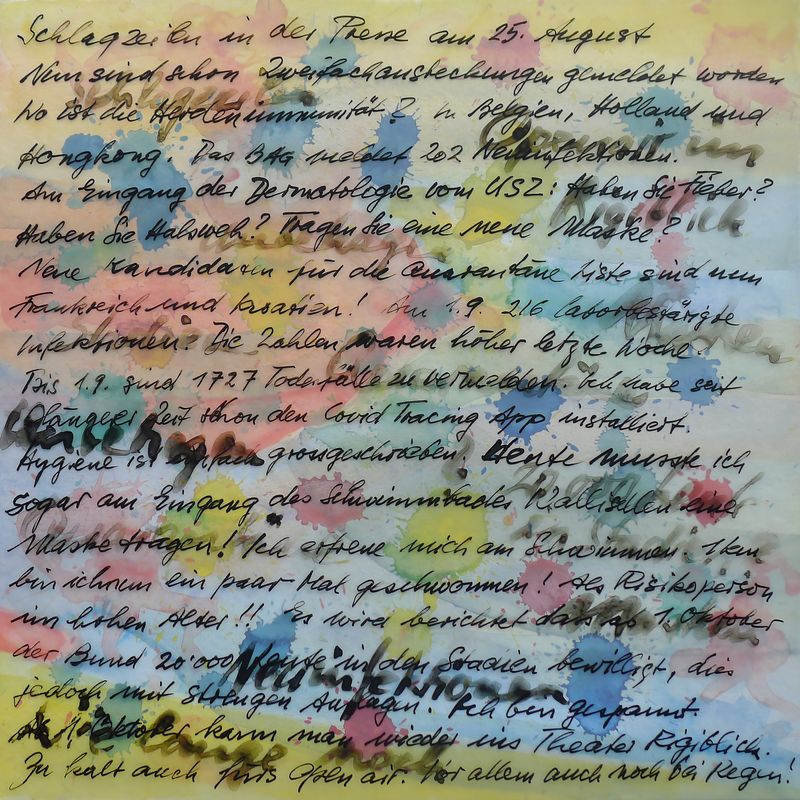 Schlagzeilen in der Presse am 25. August
Nun sind schon Zweifachansteckungen gemeldet worden
Wo ist die Herdenimmunität? In Belgien, Holland und
Hongkong. Das BAG meldet 202 Neuinfektionen.
Am Eingang der Dermatologie vom USZ: Haben Sie Fieber?
Haben Sie Halsweh? Tragen Sie eine neue Maske?
Neue Kandidaten für die Quarantäne Liste sind nun
Frankreich und Kroatien! Am 1.9. 216 laborbestätigte
Infektionen. Die Zahlen waren höher letzte Woche.
Bis 1.9. sind 1727 Todesfälle zu vermelden. Ich habe seit
längerer Zeit schon den Covid Tracing App installiert.
Hygiene ist einfach grossgeschrieben. Heute musste ich
sogar am Eingang des Schwimmbades Wallisellen eine
Maske tragen! Ich erfreue mich am Schwimmen. 1 km
bin ich nun ein paar Mal geschwommen! Als Risikoperson
im hohen Alter!! Es wird berichtet dass ab 1. Oktober
der Bund 20'000 Leute in den Stadien bewilligt, dies
jedoch mit strengen Auflagen. Ich bin gespannt.
Ab 1. Oktober kann man wieder ins Theater Rigiblick.
Zu kalt auch fürs Open air. Vor allem auch noch bei Regen!
Rigiblick
Neuinfektionen